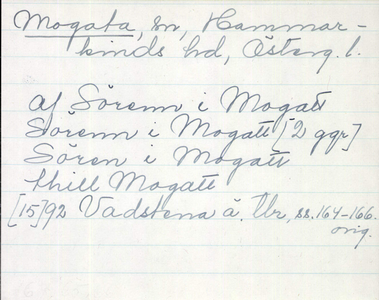 Mogata, sn, Hammar-
kinds hd, Österg. l.
af Sörenn i Mogatt
Sörenn i Mogatt [2 ggr]
Sören i Mogatt
thill Mogatt
[15]92 Vadstena ä. Ur, ss. 164-166.
orig.